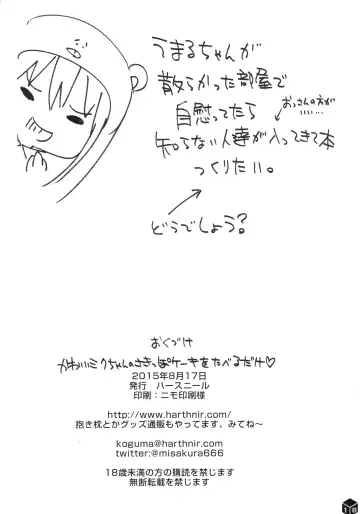 うまるちゃんが
散らかった部屋で
自慰ってたら
おっさんの方が
……
知らない人達が入ってきて本
つくりたい。
どうでしょう?
おくづけ
かわいいミクちゃんのさきっぽケーキをたべるだけ♡
2015年8月17日
発行 ハースニール
印刷:ニモ印刷様
http://www.harthnir.com/
抱き枕とかグッズ通販もやってます、みてね〜
koguma@harthnir.com
twitter:@misakura666
18歳未満の方の購読を禁じます
無断転載を禁じます